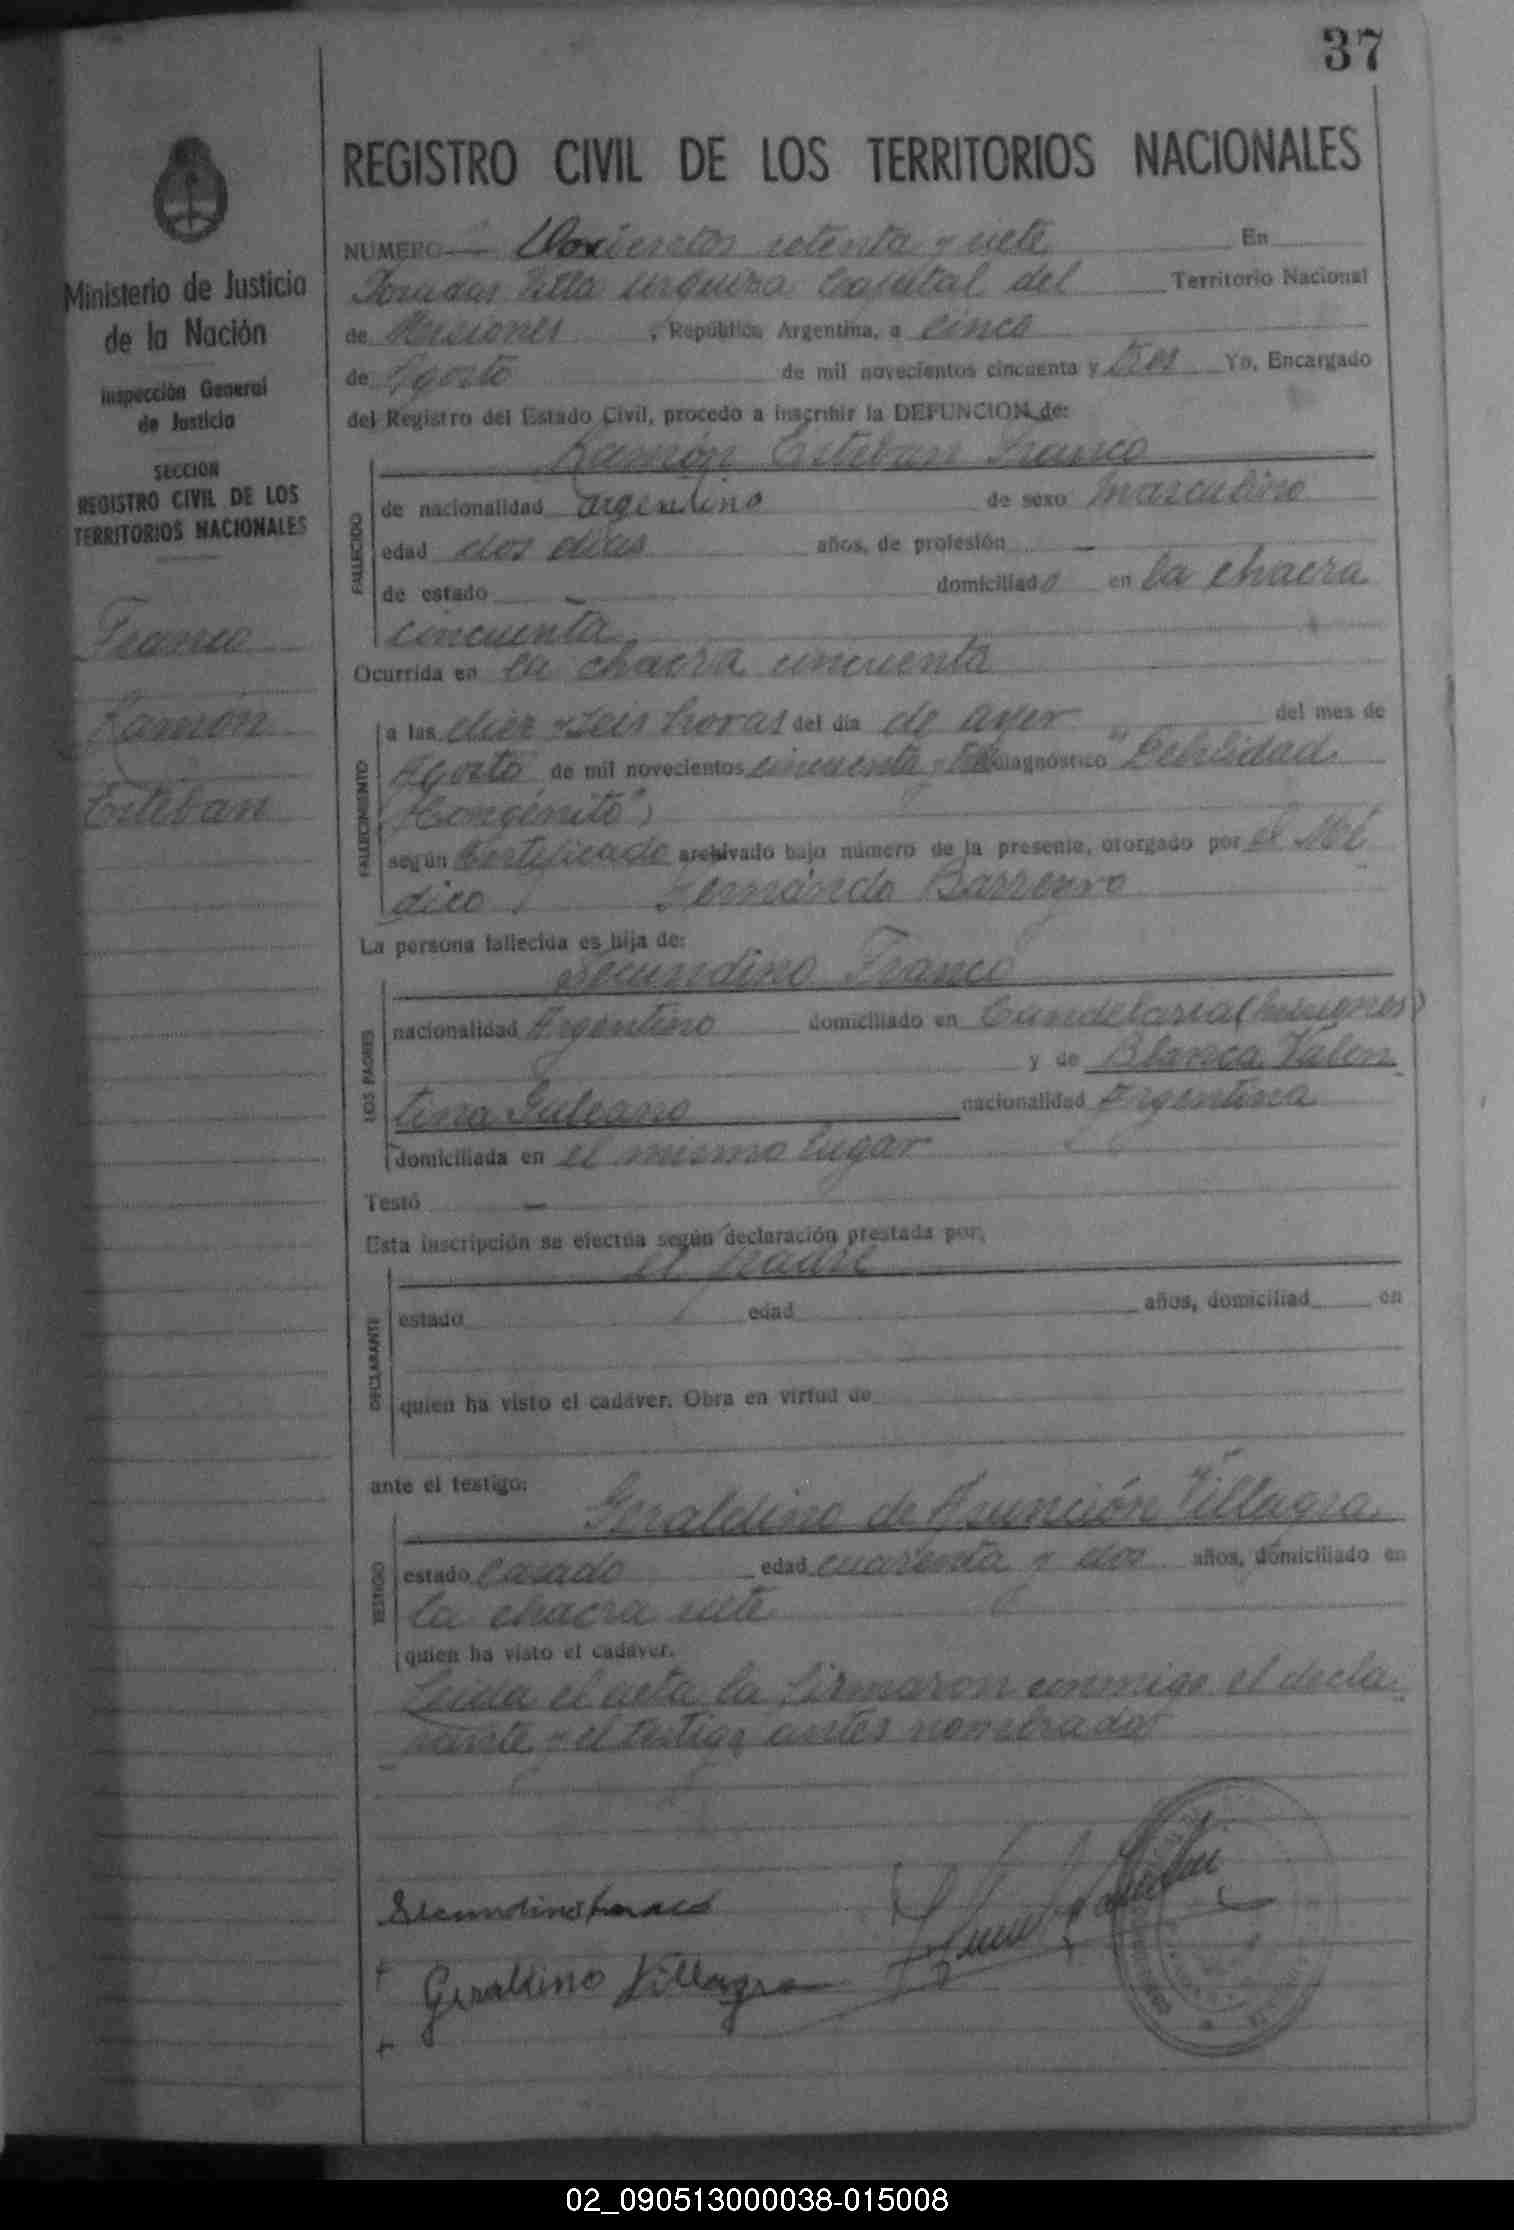 37
Ministerio de Justicia
de la Nación
Inspección General
de Justicia
SECCION
REGISTRO CIVIL DE LOS
TERRITORIOS NACIONALES
Franco
Ramón
Esteban
REGISTRO CIVIL DE LOS TERRITORIOS NACIONALES
NUMERO Doscientos setenta y siete En
Posadas Villa Urquiza Capital del Territorio Nacional
de Misiones, República Argentina, a cinco
de Agosto de mil novecientos cincuenta y tres Yo, Encargado
del Registro del Estado Civil, procedo a inscribir la DEFUNCION de:
Ramón Esteban Franco
FALLECIDO
de nacionalidad argentino de sexo masculino
edad dos días años, de profesión —
de estado — domiciliado en la chacra
cincuenta
Ocurrida en la chacra cincuenta
FALLECIMIENTO
a las diez y seis horas del día de ayer del mes de
Agosto de mil novecientos cincuenta y diagnóstico "Debilidad
Congénito")
según Certificado archivado bajo número de la presente, otorgado por el Mé
dico Fernándo Barreyro
La persona fallecida es hija de:
Secundino Franco
LOS PADRES
nacionalidad Argentino domiciliado en Candelaria (Misiones)
y de Blanca Valen
tina Galeano nacionalidad Argentina
domiciliada en el mismo lugar
Testó —
Esta inscripción se efectúa según declaración prestada por,
el padre
DECLARANTE
estado edad años, domiciliad en
quien ha visto el cadáver. Obra en virtud de
ante el testigo:
Geraldino de Asunción Villagra
TESTIGO
estado Casado edad cuarenta y dos años, domiciliado en
la chacra siete
quien ha visto el cadáver.
Leida el acta la firmaron conmigo el decla-
rante y el testigo antes nombrado
Secundino Franco
Geraldino Villagra
02_090513000038-015008